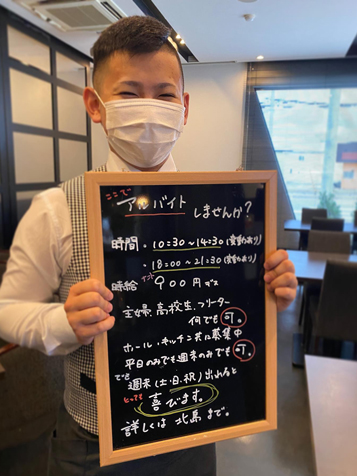 ここで
アルバイト しませんか?
時間・10:30~14:30(変更あり)
・18:00~21:30(変更あり)
時給 900円です
主婦、高校生、フリーター
何でも可。
ホール・キッチン共に募集中
平日のみでも週末のみでも可。
週末(土・日・祝)出れると
とっても
喜びます。
詳しくは 北島 まで。